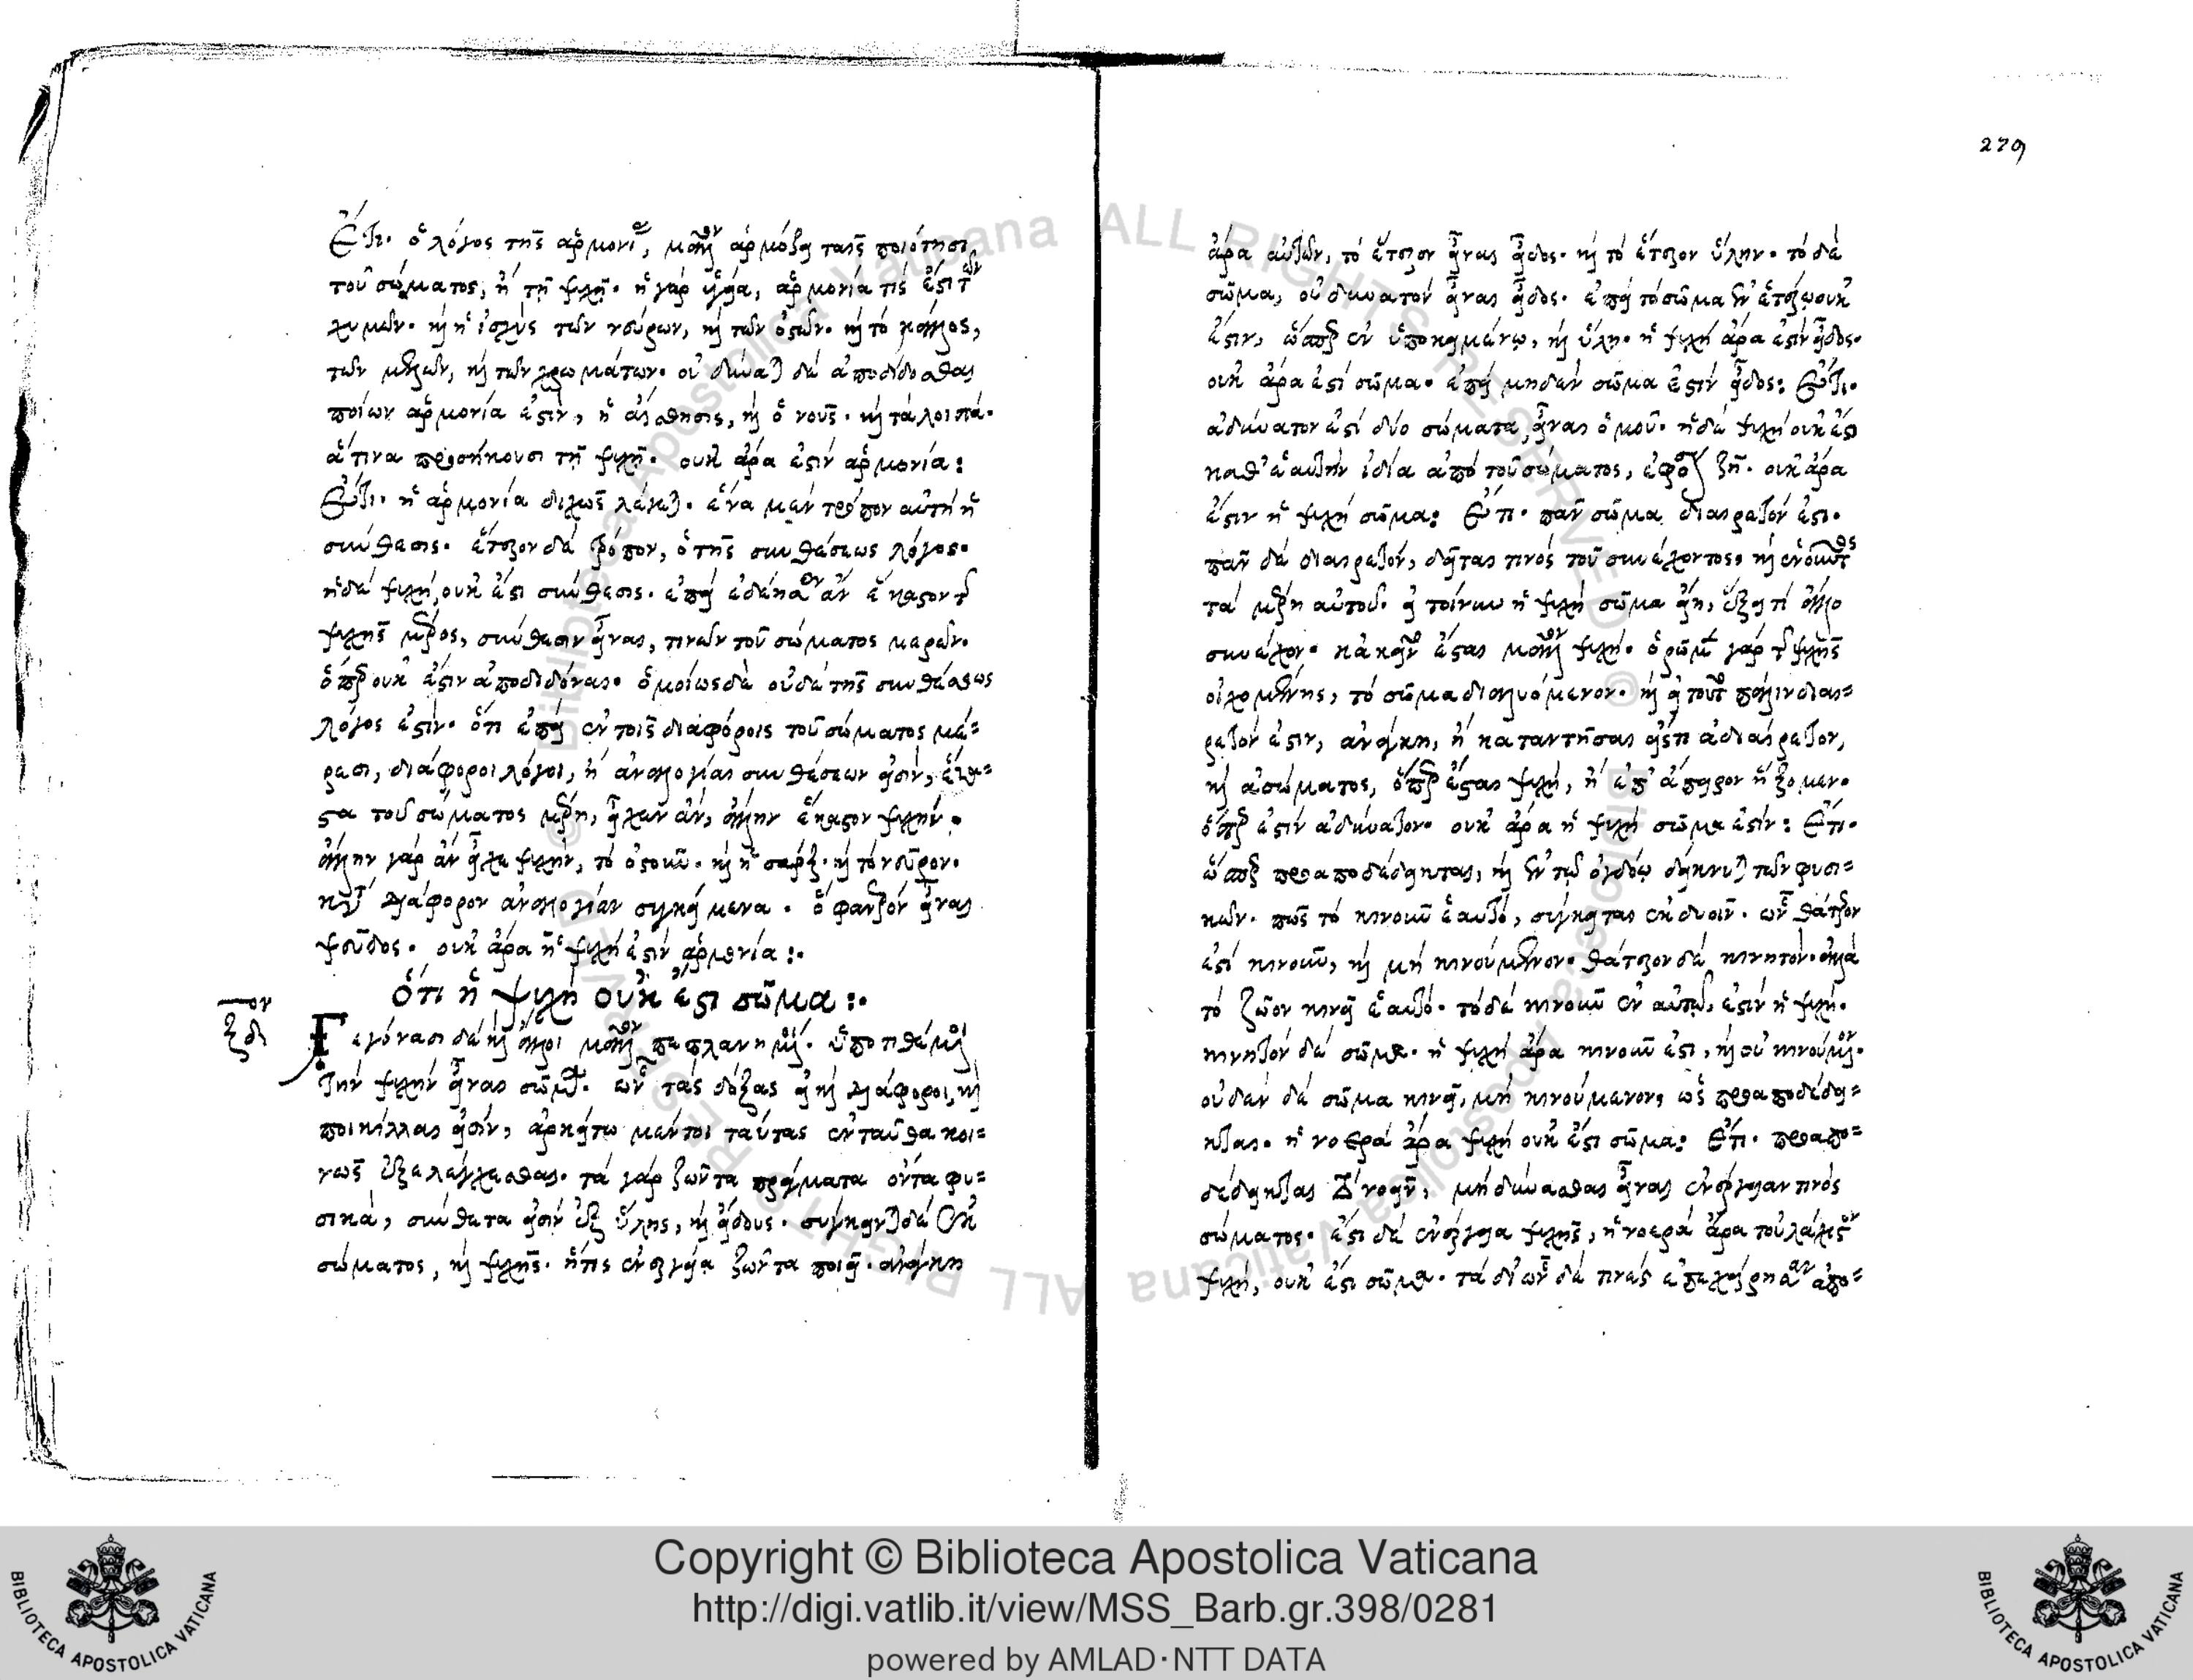 Ἔτι. ὁ λόγος τῆς ἁρμονίας, μᾶλλον ἁρμόζει ταῖς ποιότησι
τοῦ σώματος, ἢ τῇ ψυχῇ. ἡ γὰρ ὑγεία, ἁρμονία τίς ἐστι τῶν
χυμῶν. καὶ ἡ ἰσχὺς τῶν νεύρων, καὶ τῶν ὀστῶν. καὶ τὸ κάλλος,
τῶν μελῶν, καὶ τῶν χρωμάτων. οὐ δύναται δὲ ἀποδίδοσθαι
ποίων ἁρμονία ἐστὶν, ἡ αἴσθησις, καὶ ὁ νοῦς. καὶ τὰ λοιπὰ.
ἅτινα προσήκουσι τῇ ψυχῇ. οὐκ ἄρα ἐστὶν ἁρμονία:
Ἔτι. ἡ ἁρμονία διχῶς λέγεται. ἕνα μὲν τρόπον αὐτὴ ἡ
σύνθεσις. ἕτερον δὲ τρόπον, ὁ τῆς συνθέσεως λόγος.
ἡ δὲ ψυχή, οὐκ ἔστι σύνθεσις. ἐπεὶ ἐδέησεν ἂν ἕκαστον τῆς
ψυχῆς μέρος, σύνθεσιν εἶναι, τινῶν τοῦ σώματος μερῶν.
ὅπερ οὐκ ἔστιν ἀποδιδόναι. ὁμοίως δὲ οὐδὲ τῆς συνθέσεως
λόγος ἐστίν. ὅτι ἐπεὶ ἐν τοῖς διαφόροις τοῦ σώματος μέ=
ρεσι, διάφοροι λόγοι, ἢ ἀναλογίαι συνθέσεων εἰσὶν, ἕκα=
στα τοῦ σώματος μέρη, εἶχεν ἂν, ἄλλην ἕκαστον ψυχήν.
ἄλλην γὰρ ἂν εἶχε ψυχὴν, τὸ ὀστοῦν. καὶ ἡ σάρξ. καὶ τὸ νεῦρον.
κατὰ διάφορον ἀναλογίαν συγκείμενα. ὃ φανερὸν εἶναι
ψεῦδος. οὐκ ἄρα ἡ ψυχή ἐστιν ἁρμονία:.
Ὅτι ἡ ψυχὴ οὐκ ἔστι σῶμα:.
ξδον
Γεγόνασι δὲ καὶ ἄλλοι μᾶλλον πεπλανημένοι. ὑποτιθέμενοι
τὴν ψυχὴν εἶναι σῶμα. ὧν τὰς δόξας εἰ καὶ διάφοροι, καὶ
ποικίλλαι εἰσίν, ἀρκείτω μέντοι ταύτας ἐνταῦθα κοι=
νῶς ἐξελέγχεσθαι. τὰ γὰρ ζῶντα πράγματα ὄντα φυ=
σικὰ, σύνθετα εἰσὶν ἐξ ὕλης, καὶ εἴδους. σύγκεινται δὲ ἐκ
σώματος, καὶ ψυχῆς. ἥτις ἐνεργείᾳ ζῶντα ποιεῖ. ἀνάγκη
279
ἄρα αὐτῶν, τὸ ἕτερον εἶναι εἶδος. καὶ τὸ ἕτερον ὕλην. τὸ δὲ
σῶμα, οὐ δυνατὸν εἶναι εἶδος. ἐπεὶ τὸ σῶμα ἐν ἑτέρῳ οὐκ
ἔστιν, ὥσπερ ἐν ὑποκειμένῳ, καὶ ὕλῃ. ἡ ψυχὴ ἄρα ἐστὶν εἶδος.
οὐκ ἄρα ἐστὶ σῶμα. ἐπεὶ μηδὲν σῶμα ἐστὶν εἶδος: Ἔτι.
ἀδύνατον ἐστὶ δύο σώματα, εἶναι ὁμοῦ. ἡ δὲ ψυχὴ οὐκ ἔστι
καθ' ἑαυτὴν ἰδίᾳ ἀπὸ τοῦ σώματος, ἐφ' ὅσον ζῇ. οὐκ ἄρα
ἔστιν ἡ ψυχὴ σῶμα: Ἔτι. πᾶν σῶμα διαιρετόν ἐστι.
πᾶν δὲ διαιρετὸν, δεῖται τινὸς τοῦ συνέχοντος, καὶ ἑνοῦντος
τὰ μέρη αὐτοῦ. εἰ τοίνυν ἡ ψυχὴ σῶμα εἴη, ἕξει τὶ ἄλλο
συνέχον. κἀκεῖνο ἔσται μᾶλλον ψυχή. ὁρῶμεν γὰρ τῆς ψυχῆς
οἰχομένης, τὸ σῶμα διαλυόμενον. καὶ εἰ τοῦτο πάλιν διαι=
ρετόν ἐστιν, ἀνάγκη, ἢ καταντῆσαι εἴς τι ἀδιαίρετον,
καὶ ἀσώματος, ὅπερ ἔσται ψυχή, ἢ ἐπ' ἄπειρον ἥξομεν.
ὅπερ ἐστὶν ἀδύνατον. οὐκ ἄρα ἡ ψυχὴ σῶμα ἐστίν: Ἔτι.
ὥσπερ προαποδέδεικται, καὶ ἐν τῷ ὀγδόῳ δείκνυται τῶν φυσι=
κῶν. πῶς τὸ κινοῦν ἑαυτὸ, σύγκειται ἐκ δυοῖν. ὧν θάτερον
ἐστὶ κινοῦν, καὶ μὴ κινούμενον. θάτερον δὲ κινητόν. ἀλλὰ
τὸ ζῶον κινεῖ ἑαυτό. τὸ δὲ κινοῦν ἐν αὐτῷ, ἐστὶν ἡ ψυχή.
κινητὸν δὲ σῶμα. ἡ ψυχὴ ἄρα κινοῦν ἐστι, καὶ οὐ κινούμενον.
οὐδὲν δὲ σῶμα κινεῖ, μὴ κινούμενον, ὡς προαποδέδει=
κται. ἡ νοερὰ ἄρα ψυχὴ οὐκ ἔστι σῶμα: Ἔτι. προαπο=
δέδεικται τὸ νοεῖν, μὴ δύνασθαι εἶναι ἐνέργειαν τινὸς
σώματος. ἔστι δὲ ἐνέργεια ψυχῆς, ἡ νοερὰ ἄρα τοὐλάχιστον
ψυχή, οὐκ ἔστι σῶμα. τὰ δι' ὧν δὲ τινὲς ἐπεχείρησαν ἀπο=
Copyright © Biblioteca Apostolica Vaticana
http://digi.vatlib.it/view/MSS_Barb.gr.398/0281
powered by AMLAD·NTT DATA
BIBLIOTECA APOSTOLICA VATICANA
BIBLIOTECA APOSTOLICA VATICANA